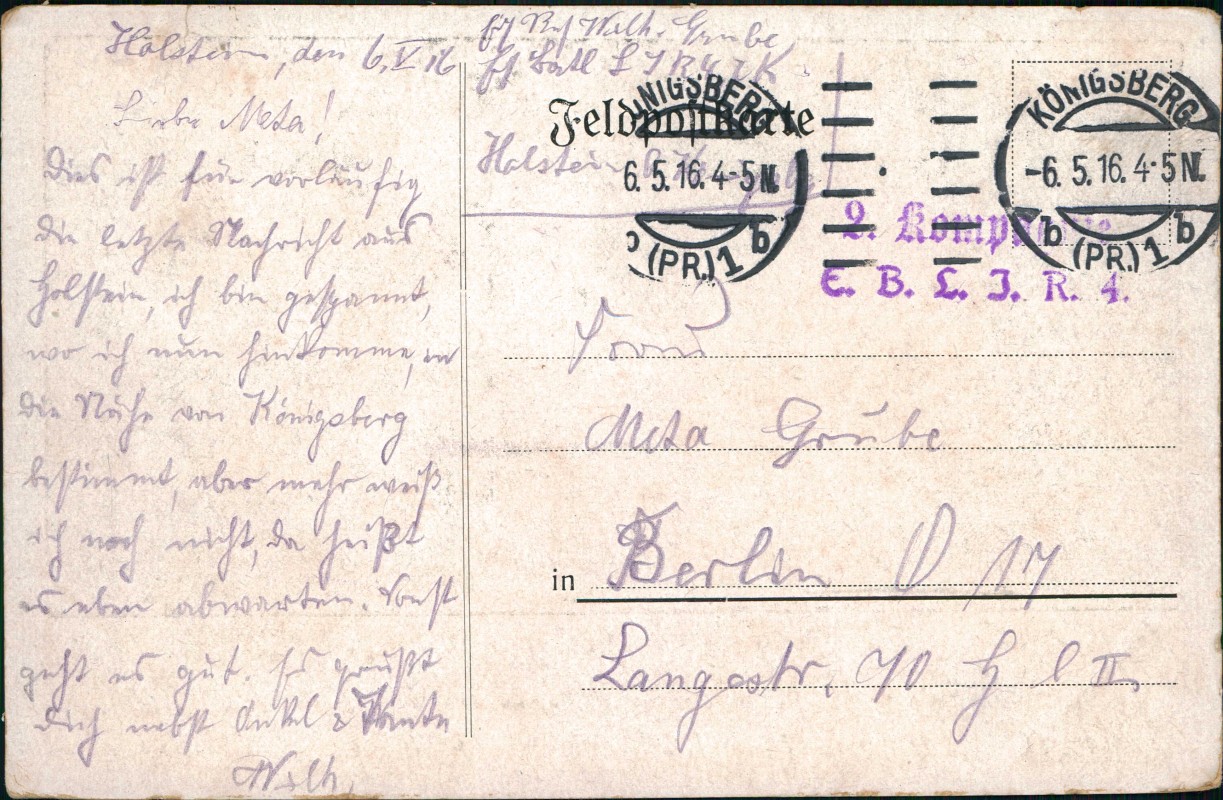 Holstein, den 6.V.16
Liebe Meta!
Dies ist für vorläufig
die letzte Nachricht aus
Holstein, ich bin gespannt,
wo ich nun hinkomme, in
die Nähe von Königsberg
bestimmt, aber mehr weiß
ich noch nicht, da heißt
es eben abwarten. Sonst
geht es gut. Es grüßt
Dich nebst Onkel & Tante
Walh.
Walh. Grube
Feldpostkarte
Holstein
KÖNIGSBERG
6.5.16.4-5N.
(PR.) 1 b
KÖNIGSBERG
-6.5.16.4-5N.
b (PR.) 1 b
2. Kompagnie
E. B. L. I. R. 4.
Frau
Meta Grube
in Berlin O 17
Langestr. 70 H l II